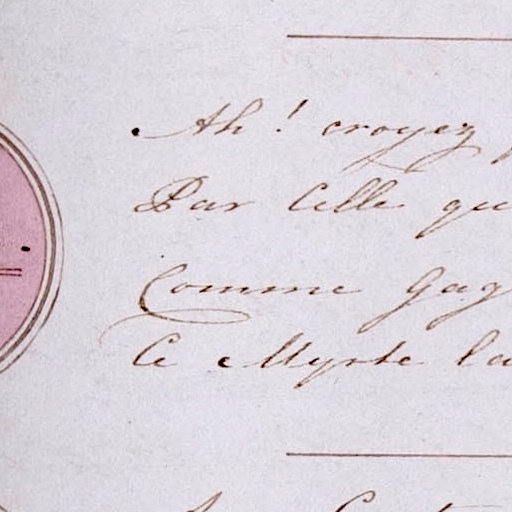 Ah ! croyez
Par Celle qu
Comme Gag
Ce Myrte la